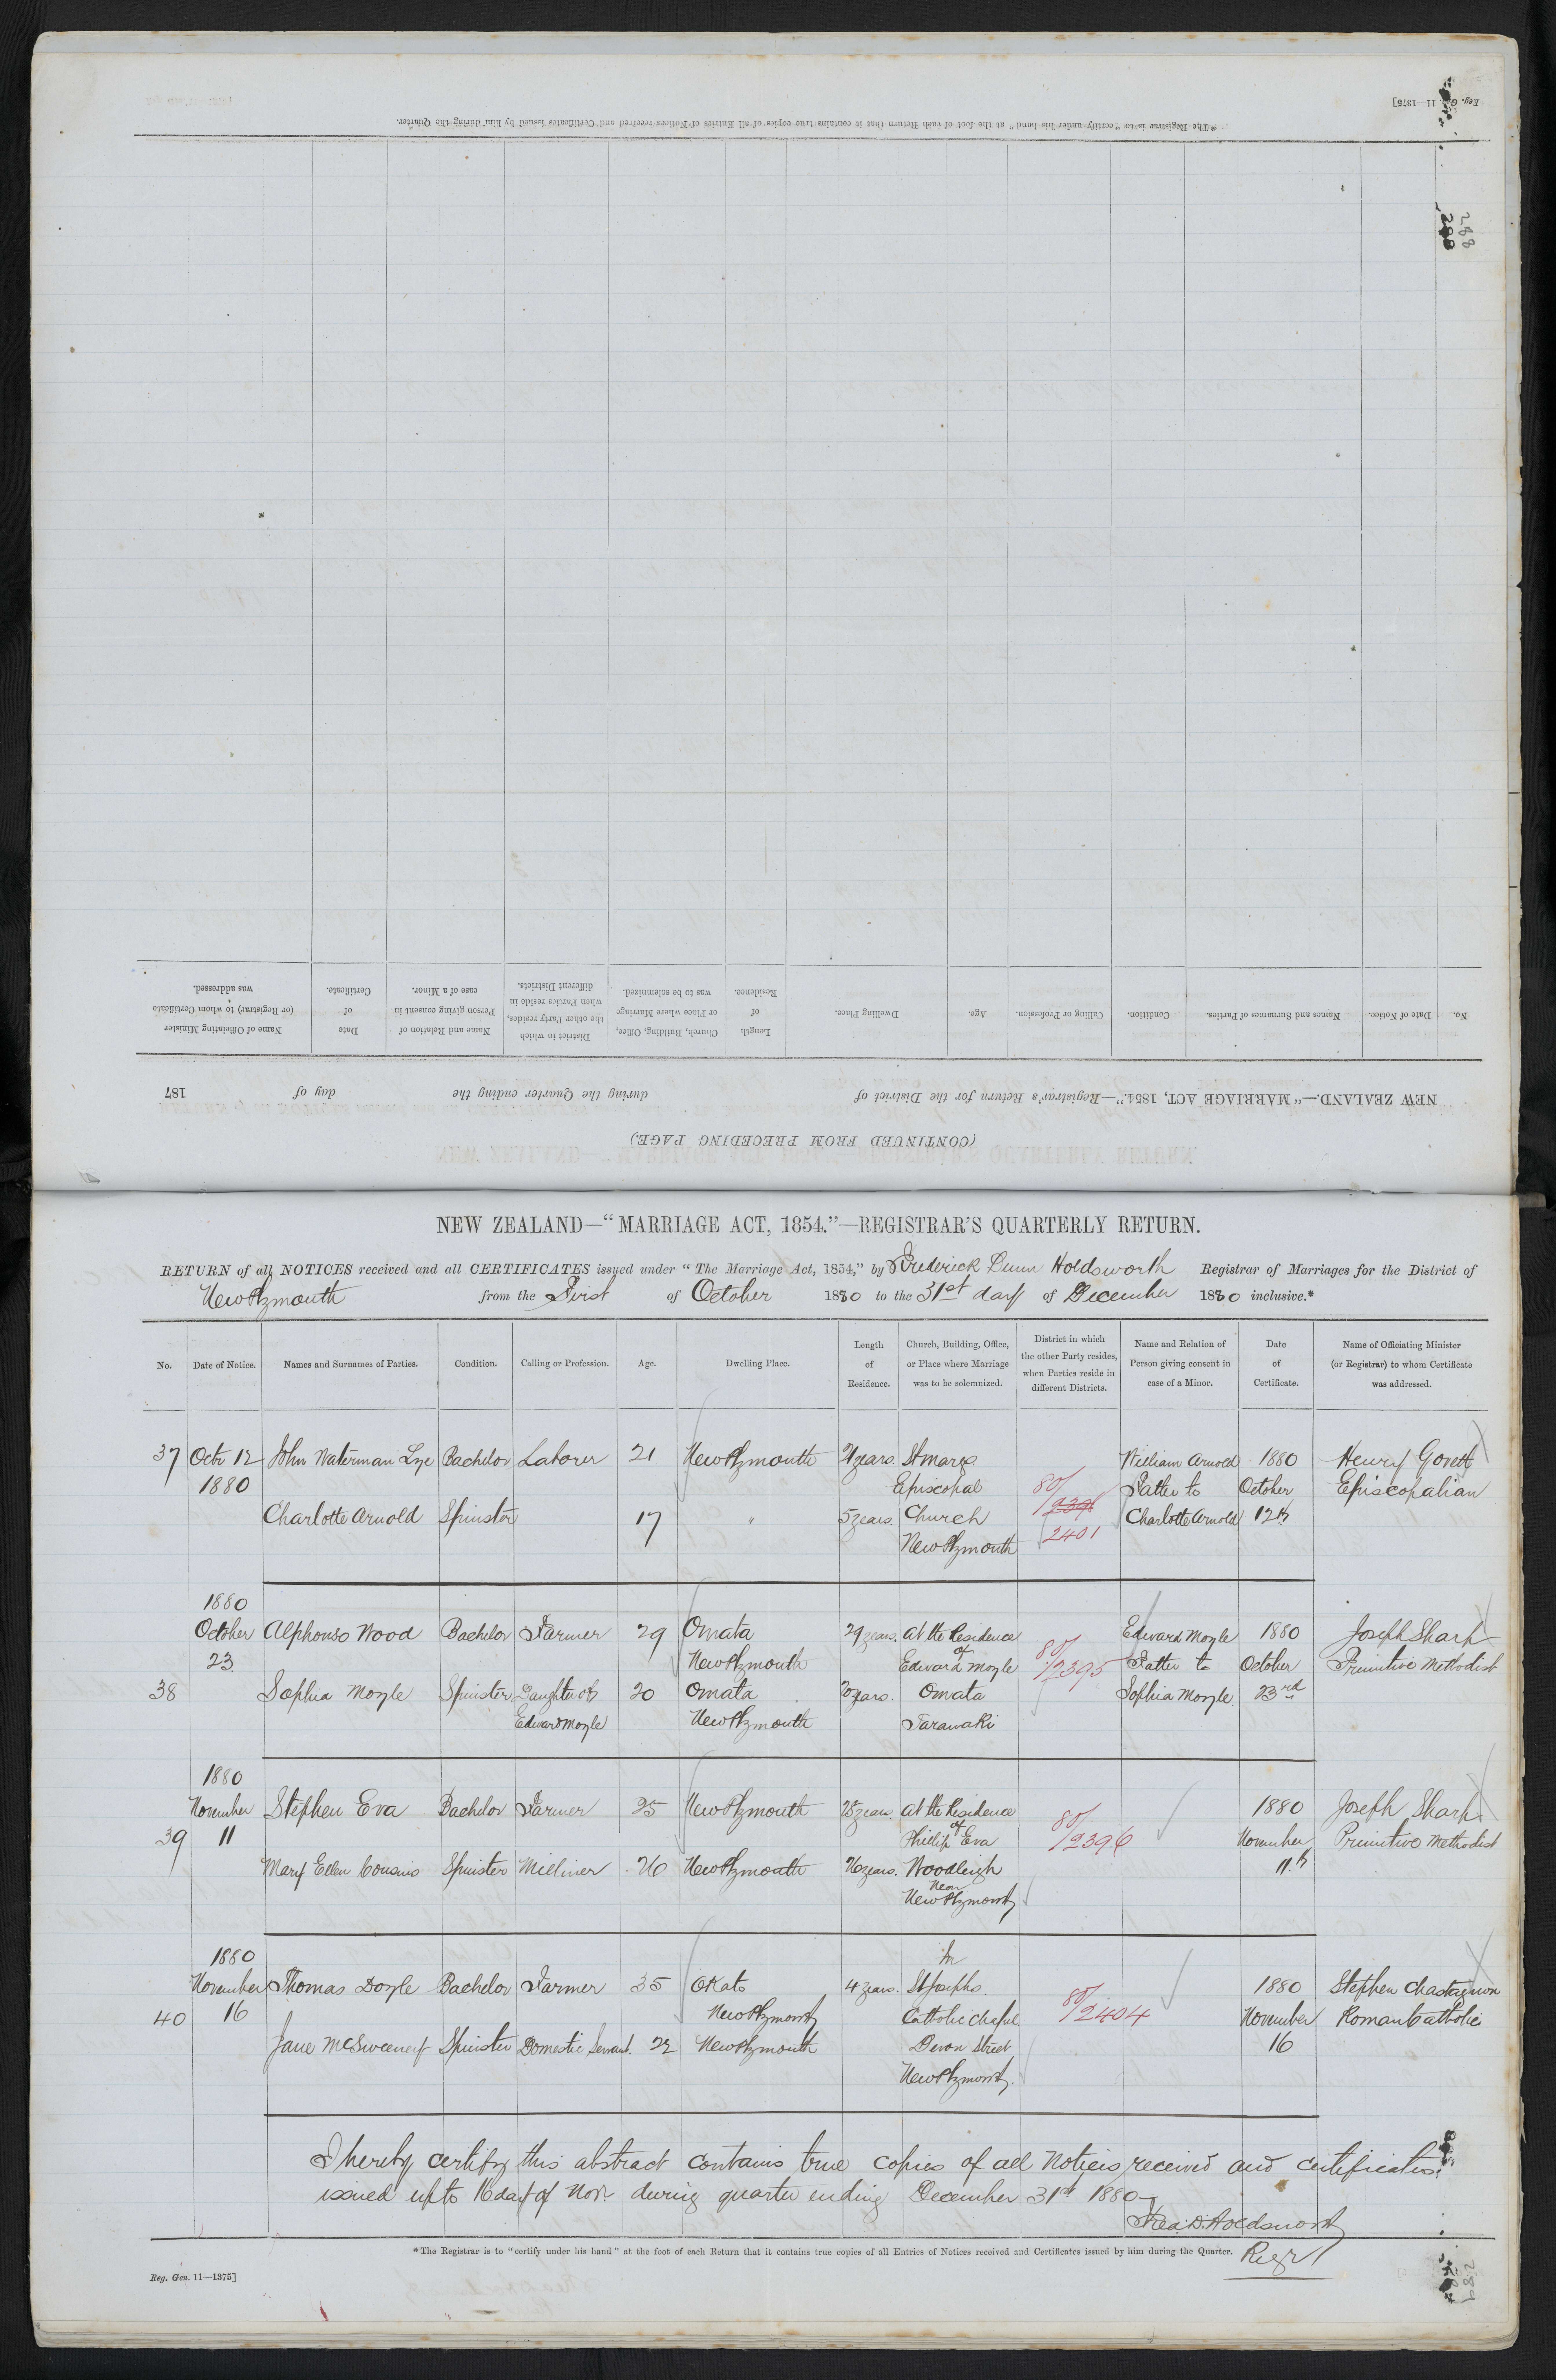 Reg. Gen. 11—1375]
*The Registrar is to "certify under his hand" at the foot of each Return that it contains true copies of all Entries of Notices received and Certificates issued by him during the Quarter.
288
288
No.
Date of Notice.
Names and Surnames of Parties.
Condition.
Calling or Profession.
Age.
Dwelling Place.
Length
of
Residence.
Church, Building, Office,
or Place where Marriage
was to be solemnized.
District in which
the other Party resides,
when Parties reside in
different Districts.
Name and Relation of
Person giving consent in
case of a Minor.
Date
of
Certificate.
Name of Officiating Minister
(or Registrar) to whom Certificate
was addressed.
NEW ZEALAND.—"MARRIAGE ACT, 1854."—Registrar's Return for the District of during the Quarter ending the day of 187
(CONTINUED FROM PRECEDING PAGE.)
NEW ZEALAND—"MARRIAGE ACT, 1854."—REGISTRAR'S QUARTERLY RETURN.
RETURN of all NOTICES received and all CERTIFICATES issued under "The Marriage Act, 1854," by Frederick Dunn Holdsworth Registrar of Marriages for the District of
New Plymouth from the First of October 1880 to the 31st day of December 1880 inclusive.*
No.
Date of Notice.
Names and Surnames of Parties.
Condition.
Calling or Profession.
Age.
Dwelling Place.
Length
of
Residence.
Church, Building, Office,
or Place where Marriage
was to be solemnized.
District in which
the other Party resides,
when Parties reside in
different Districts.
Name and Relation of
Person giving consent in
case of a Minor.
Date
of
Certificate.
Name of Officiating Minister
(or Registrar) to whom Certificate
was addressed.
37 Octr 12 John Waterman Lye Bachelor Laborer 21 New Plymouth 21 years. St Marys William Arnold 1880 Henry Govett
1880 Episcopal 80/ Father to October Episcopalian
Charlotte Arnold Spinster 17 " 5 years. Church 2401 Charlotte Arnold 12th
New Plymouth
1880
October Alphonso Wood Bachelor Farmer 29 Omata 29 years. At the Residence Edward Moyle 1880 Joseph Sharp
23 New Plymouth of Edward Moyle 80/2395 Father to October Primitive Methodist
38 Sophia Moyle Spinster Daughter of 20 Omata 20 years. Omata Sophia Moyle. 23rd
Edward Moyle New Plymouth Taranaki
1880
November Stephen Eva Bachelor Farmer 25 New Plymouth 25 years. At the Residence 1880 Joseph Sharp
39 11 of Phillip Eva 80/2396 November Primitive Methodist
Mary Ellen Cousins Spinster Milliner 26 New Plymouth 26 years. Woodleigh 11th
Near
New Plymouth
1880 In
November Thomas Doyle Bachelor Farmer 35 Okato 4 years. St Josephs. 1880 Stephen Chastagnon
40 16 New Plymouth Catholic Chapel 80/2404 November Roman Catholic
Jane McSweeney Spinster Domestic Servant. 22 New Plymouth Devon Street 16
New Plymouth.
I hereby certify this abstract contains true copies of all notices received and certificates
issued up to 16 day of Novr. during quarter ending December 31st 1880
Fred: D. Holdsworth
Regr
*The Registrar is to "certify under his hand" at the foot of each Return that it contains true copies of all Entries of Notices received and Certificates issued by him during the Quarter.
Reg. Gen. 11—1375]
289